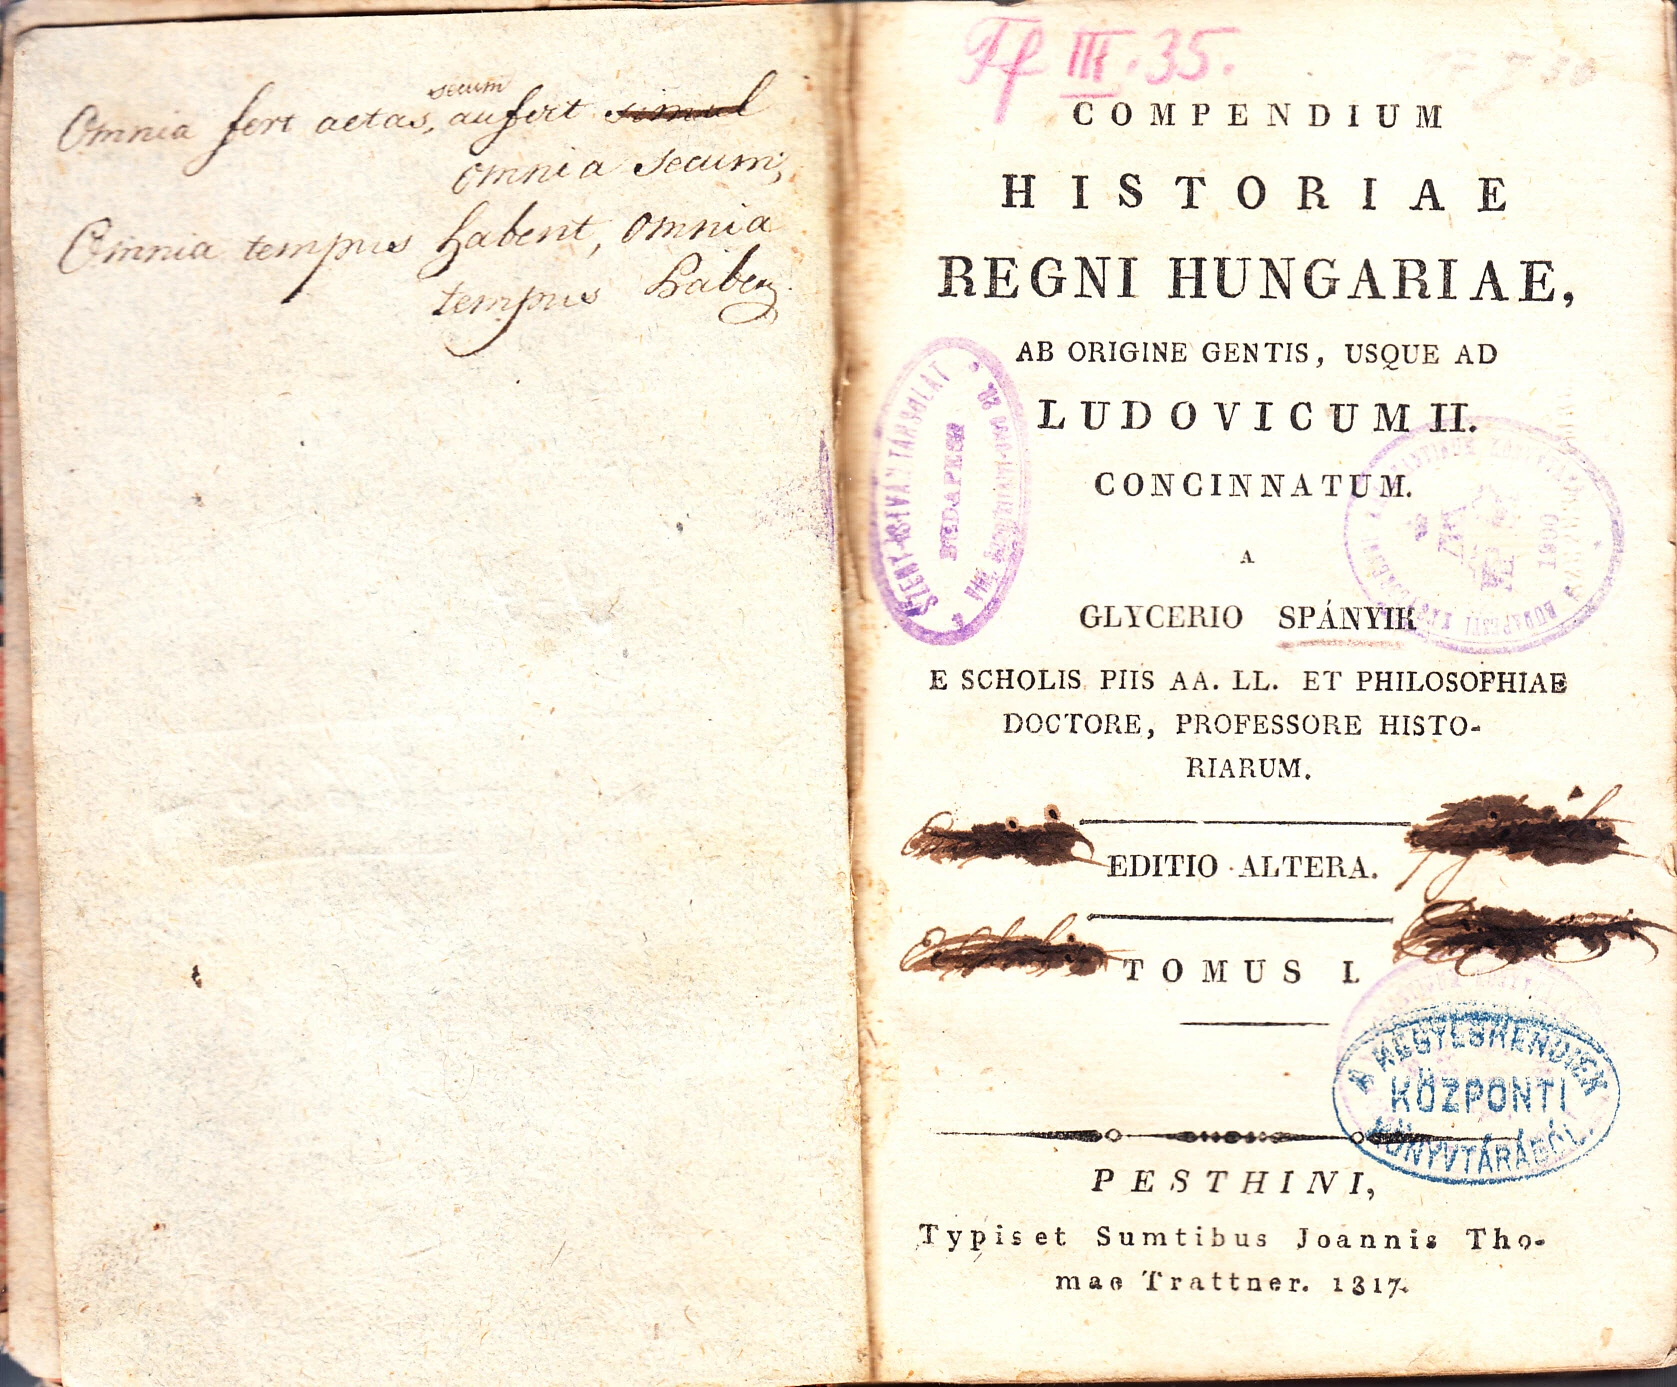 secum
Omnia fert aetas, aufert simul
omnia secum;
Omnia tempus habent, omnia
tempus habent
Ff III. 35.
COMPENDIUM
HISTORIAE
REGNI HUNGARIAE,
AB ORIGINE GENTIS, USQUE AD
LUDOVICUM II.
CONCINNATUM.
A
GLYCERIO SPÁNYIK
E SCHOLIS PIIS AA. LL. ET PHILOSOPHIAE
DOCTORE, PROFESSORE HISTO-
RIARUM.
EDITIO ALTERA.
TOMUS I.
PESTHINI,
Typis et Sumtibus Joannis Tho-
mae Trattner. 1817.
SZENT-ISTVÁN TÁRSULAT
BUDAPEST
1900
A KEGYESRENDIEK
KÖZPONTI
KÖNYVTÁRÁBÓL.